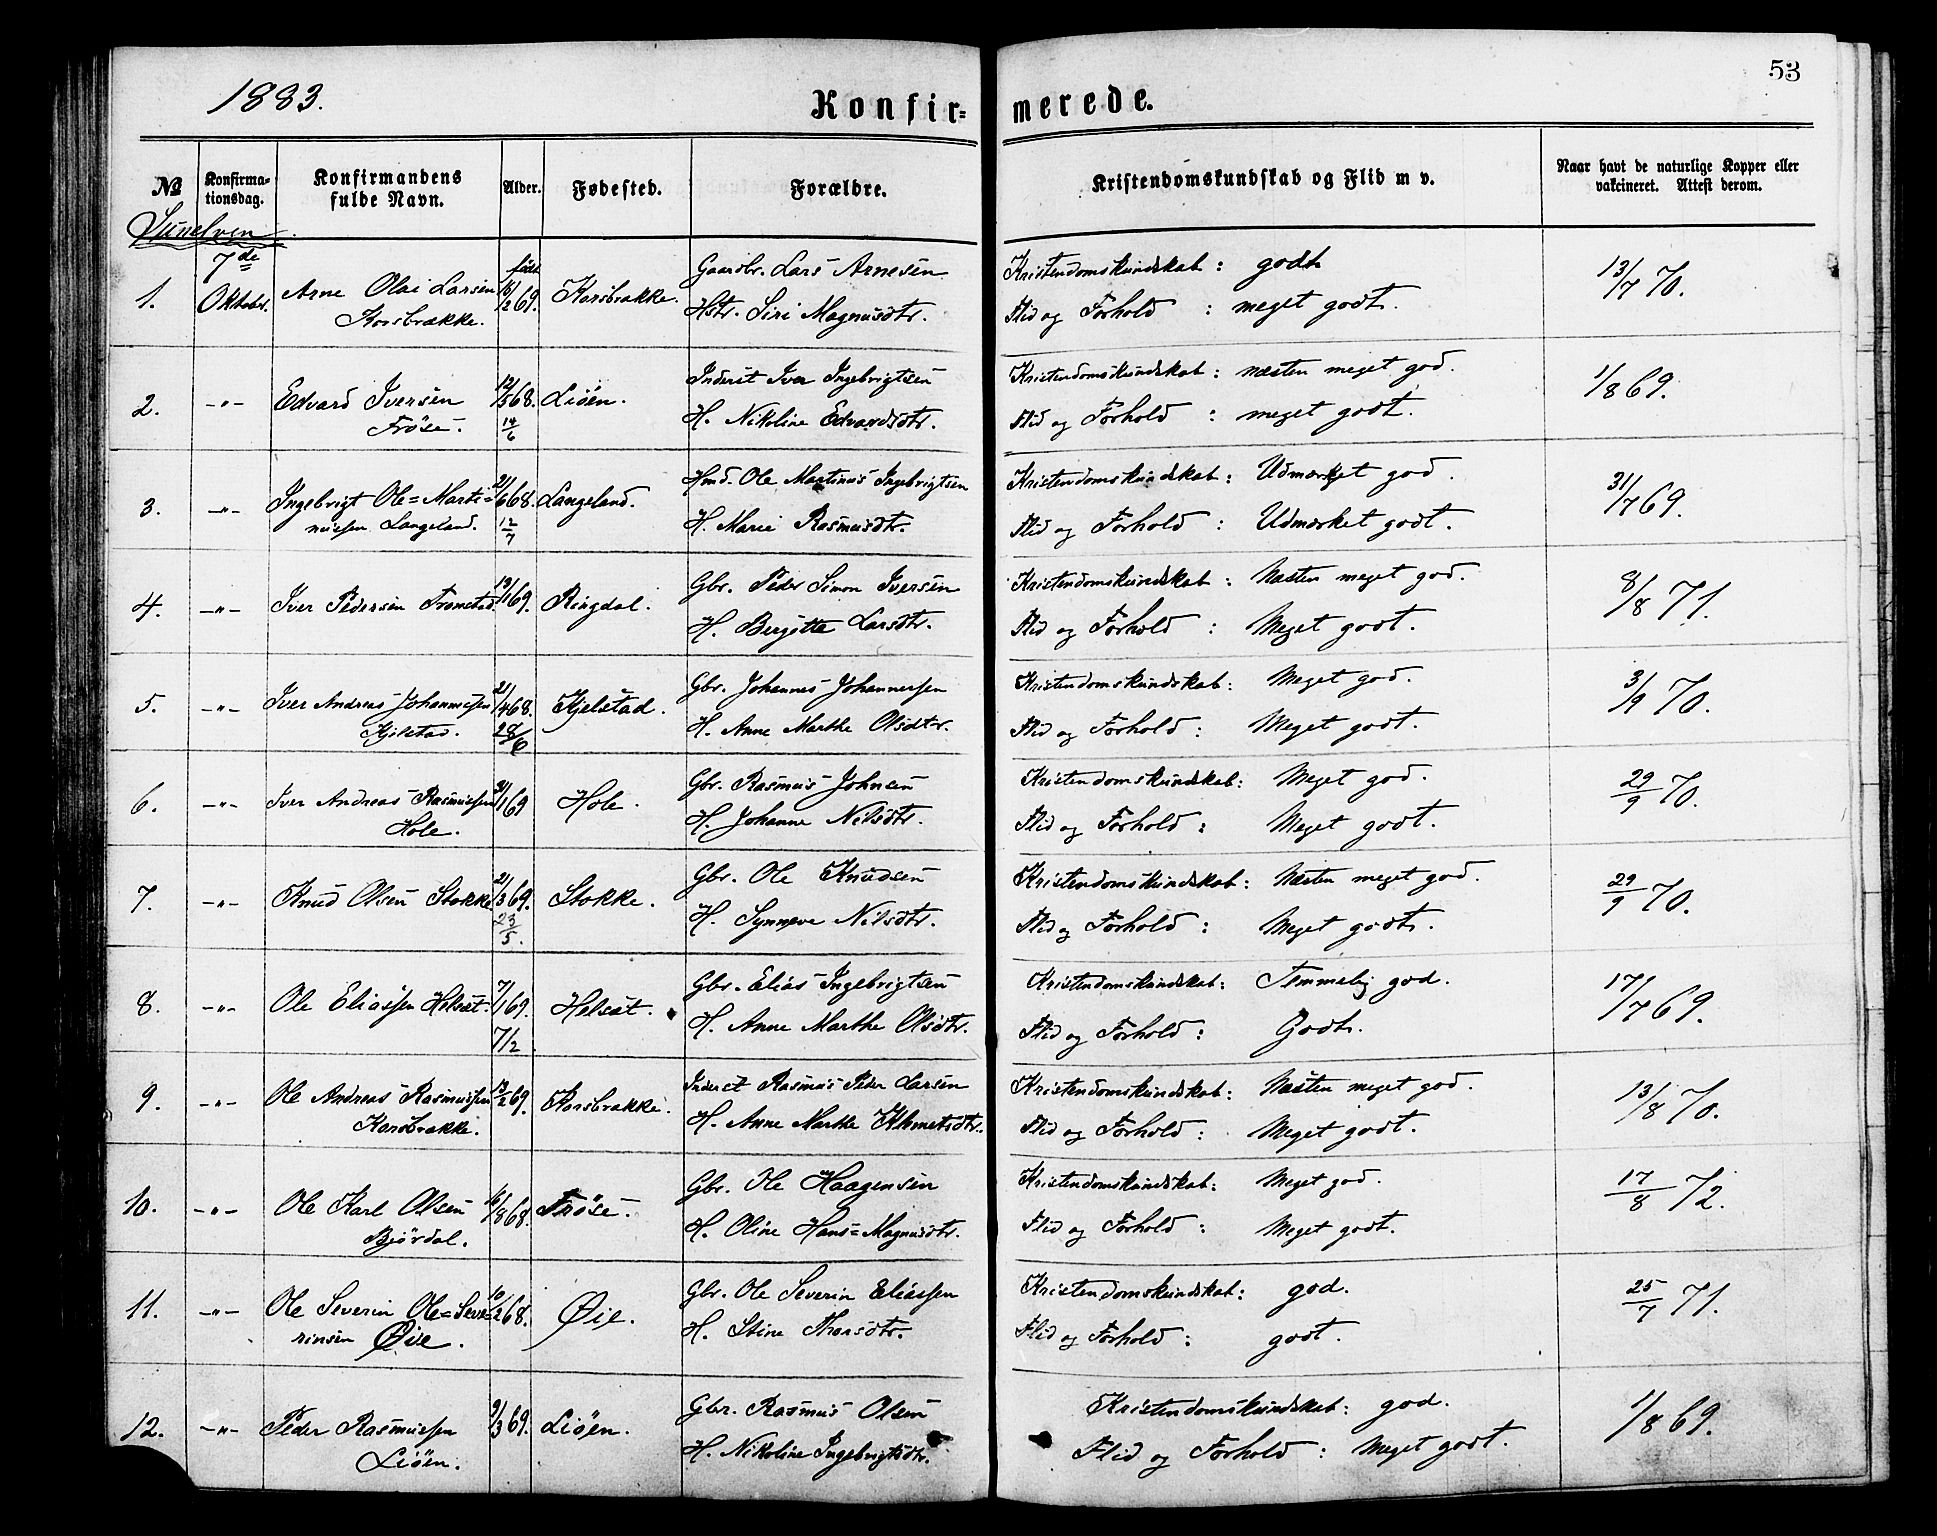 53
1883.
Konfir=
merede.
No
Konfirma-
tionsdag.
Konfirmandens
fulde Navn.
Alder.
Fødested.
Forældre.
Kristendomskundskab og Flid m v.
Naar havt de naturlige Kopper eller
vakcineret. Attest derom.
Sunelven
1. 7de Oktober. Arne Olai Larsen født 18/2 69. Korsbrække. Gaardbr. Lars Arnesen Kristendomskundskab: godt 13/7 70.
Korsbrække. Hstr. Siri Magnusdtr. Flid og Forhold : meget godt.
2. -"- Edvard Iversen 12/5 68. Liöen. Inderst Iver Ingebrigtsen Kristendomskundskab: næsten meget god. 1/8 69.
Fröse. 14/6 H. Nikoline Edvardsdtr. Flid og Forhold : meget godt.
3. -"- Ingebrigt Ole=Marti= 21/6 68. Langeland. Hmd. Ole Martinus Ingebrigtsen Kristendomskundskab: Udmærket god. 31/7 69.
nussen Langeland. 12/7 H. Marie Rasmusdtr. Flid og Forhold : Udmærket godt.
4. -"- Iver Pedersen Tronstad. 13/1 69. Ringdal. Gbr. Peder Simon Iversen Kristendomskundskab: Næsten meget god. 8/8 71.
H. Bergitte Larsdtr. Flid og Forhold : Meget godt.
5. -"- Iver Andreas Johannessen 21/4 68. Kjelstad. Gbr. Johannes Johannessen Kristendomskundskab: Meget god. 3/9 70.
Kjelstad. 28/6 H. Anne Marthe Olsdtr. Flid og Forhold : Meget godt.
6. -"- Iver Andreas Rasmussen 31/1 69 Hole. Gbr. Rasmus Johnsen Kristendomskundskab: Meget god. 29/9 70.
Hole. H. Johanne Nilsdtr. Flid og Forhold : Meget godt.
7. -"- Knud Olsen Stokke 21/3 69. Stokke. Gbr. Ole Knudsen Kristendomskundskab: Næsten meget god. 29/9 70.
23/5. H. Synneve Nilsdtr. Flid og Forhold : Meget godt.
8. -"- Ole Eliassen Helsæt. 7/1 69. Helsæt. Gbr. Elias Ingebrigtsen Kristendomskundskab: Temmelig god. 17/7 69.
7/2 H. Anne Marthe Olsdtr. Flid og Forhold : Godt.
9. -"- Ole Andreas Rasmussen 13/2 69. Korsbrække. Inderst Rasmus Peder Larsen Kristendomskundskab: Næsten meget god. 13/8 70.
Korsbrække. H. Anne Marthe Klemetsdtr. Flid og Forhold : Meget godt.
10. -"- Ole Karl Olsen 16/8 68. Fröse. Gbr. Ole Haagensen Kristendomskundskab: Meget god. 17/8 72.
Björdal. H. Oline Hans=Magnusdtr. Flid og Forhold : Meget godt.
11. -"- Ole Severin Ole=Seve= 10/2 68. Øie. Gbr. Ole Severin Eliassen Kristendomskundskab: god. 25/7 71.
rinsen Øie. H. Stine Thorsdtr. Flid og Forhold : godt.
12. -"- Peder Rasmussen 9/3 69. Liöen. Gbr. Rasmus Olsen Kristendomskundskab: god. 1/8 69.
Liöen. H. Nikoline Ingebrigtsdtr. Flid og Forhold : Meget godt.